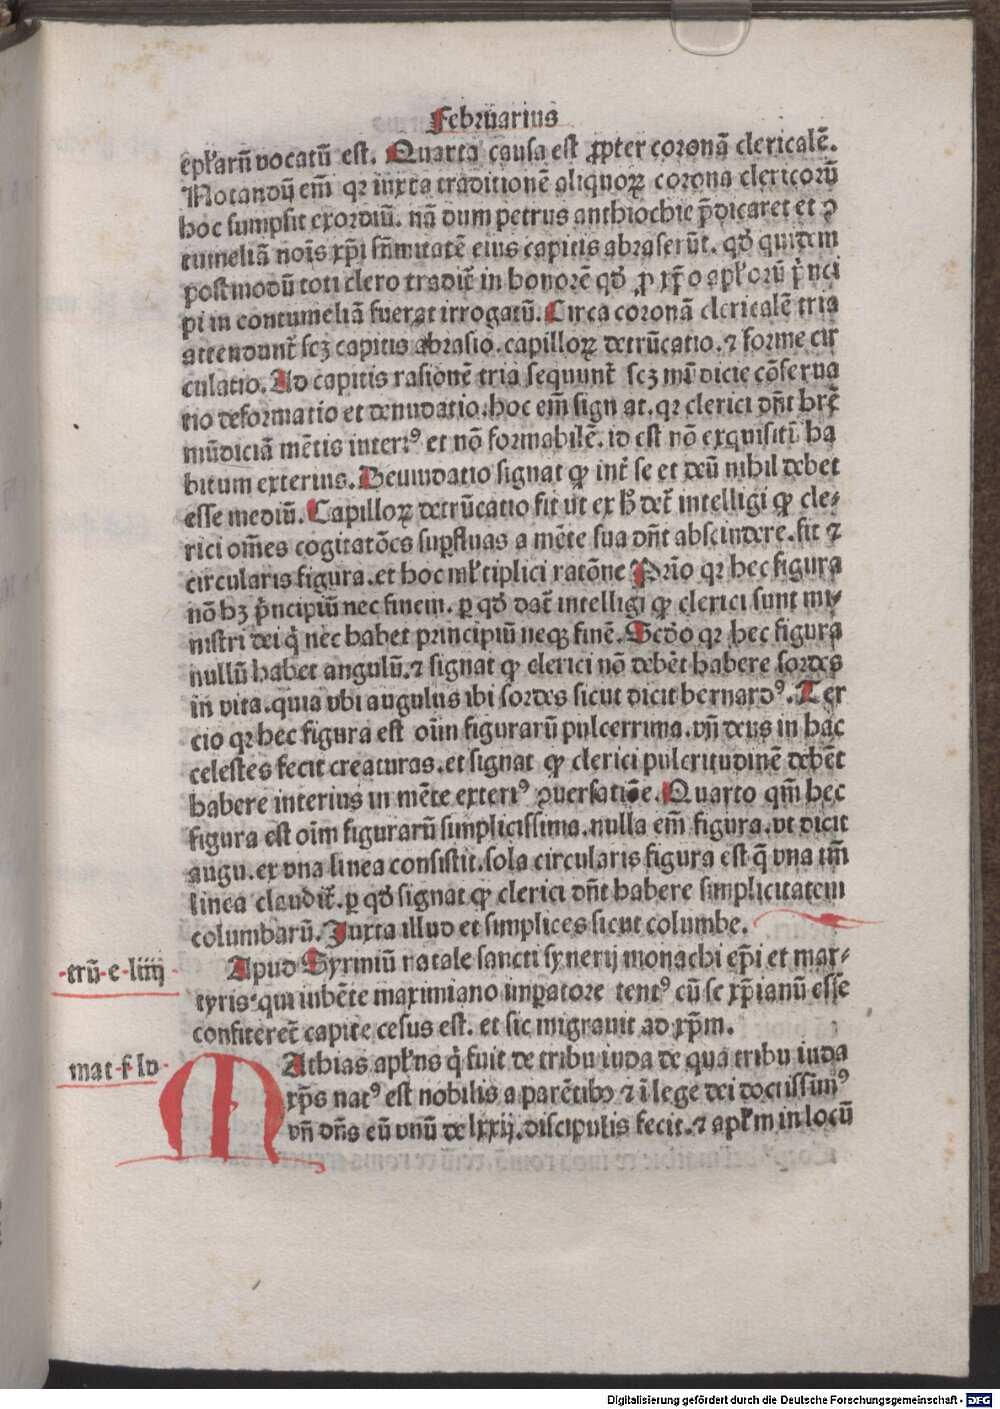 Februarius
epl̃arū vocatū est. Quarta causa est ꝓpter coronā clericalē.
Notandū em̄ qꝛ iuxta traditionē aliquoꝝ corona clericorū
hoc sumpsit exordiū. nā dum petrus anthiochie p̄dicaret et ꝯ
tumeliā noīs xp̄i sūmitatē eius capitis abraserūt. qđ quidem
postmodū toti clero tradit̄ in honorē qđ ꝓ xp̄o apl̃orū p̄nci
pi in contumeliā fuerat irrogatū. Circa coronā clericalē tria
attendunt̄ scꝫ capitis abrasio. capilloꝝ detrūcatio. ⁊ forme cir
culatio. Ad capitis rasionē tria sequunt̄ scꝫ mūdicie cōserua
tio deformatio et denudatio. hoc em̄ signat. qꝛ clerici dn̄t hr̄e
mūdiciā mētis interiꝰ et nō formabilē. id est nō exquisitū ha
bitum exterius. Denudatio signat ꝙ int̄ se et deū nihil debet
esse mediū. Capilloꝝ detrūcatio fit ut ex h̄ det̄ intelligi ꝙ cle⸗
rici om̄es cogitatōes suꝑfluas a mēte sua dn̄t abscindere. fit ⁊
circularis figura. et hoc ml̃tiplici ratōne Prīo qꝛ hec figura
nō hꝫ p̄ncipiū nec finem. ꝑ qđ dat̄ intelligi ꝙ clerici sunt mi⸗
nistri dei q̇ nec habet principiū neqꝫ finē. Scđo qꝛ hec figura
nullū habet angulū. ⁊ signat ꝙ clerici nō debēt habere sordes
in vita. quia vbi angulus ibi sordes sicut dicit bernardꝰ. Ter
cio qꝛ hec figura est oīm figurarū pulcerrima. vn̄ deus in hac
celestes fecit creaturas. et signat ꝙ clerici pulcritudinē debēt
habere interius in mēte exteriꝰ ꝯuersatiōe. Quarto qm̄ hec
figura est oīm figurarū simplicissima. nulla em̄ figura. vt dicit
augu. ex vna linea consistit. sola circularis figura est q̄ vna tm̄
linea claudit̄. ꝑ qđ signat ꝙ clerici dn̄t habere simplicitatem
columbarū. Juxta illud et simplices sicut columbe.
·trū·e·liiij·
Apud Syrmiū natale sancti synerij monachi ep̄i et mar⸗
tyris· qui iubēte maximiano imꝑatore tentꝰ cū se xp̄ianū esse
confiteret̄ capite cesus est. et sic migrauit ad xp̄m.
mat·f·lv·
MAthias apl̃us q̇ fuit de tribu iuda de qua tribu iuda
xp̄s natꝰ est nobilis a parētibꝫ ⁊ ī lege dei doctissimꝰ
vn̄ dn̄s eū vnū de lxxij. discipulis fecit. ⁊ apl̃m in locū
Digitalisierung gefördert durch die Deutsche Forschungsgemeinschaft - DFG